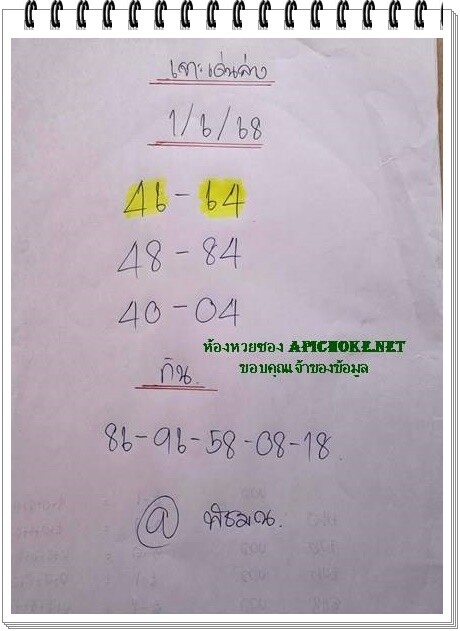 เจาะเด่นล่าง
1/6/68
46 - 64
48 - 84
40 - 04
ห้องหวยซอง APICHOKE.NET
ขอบคุณเจ้าของข้อมูล
กัน.
86-96-58-08-18.